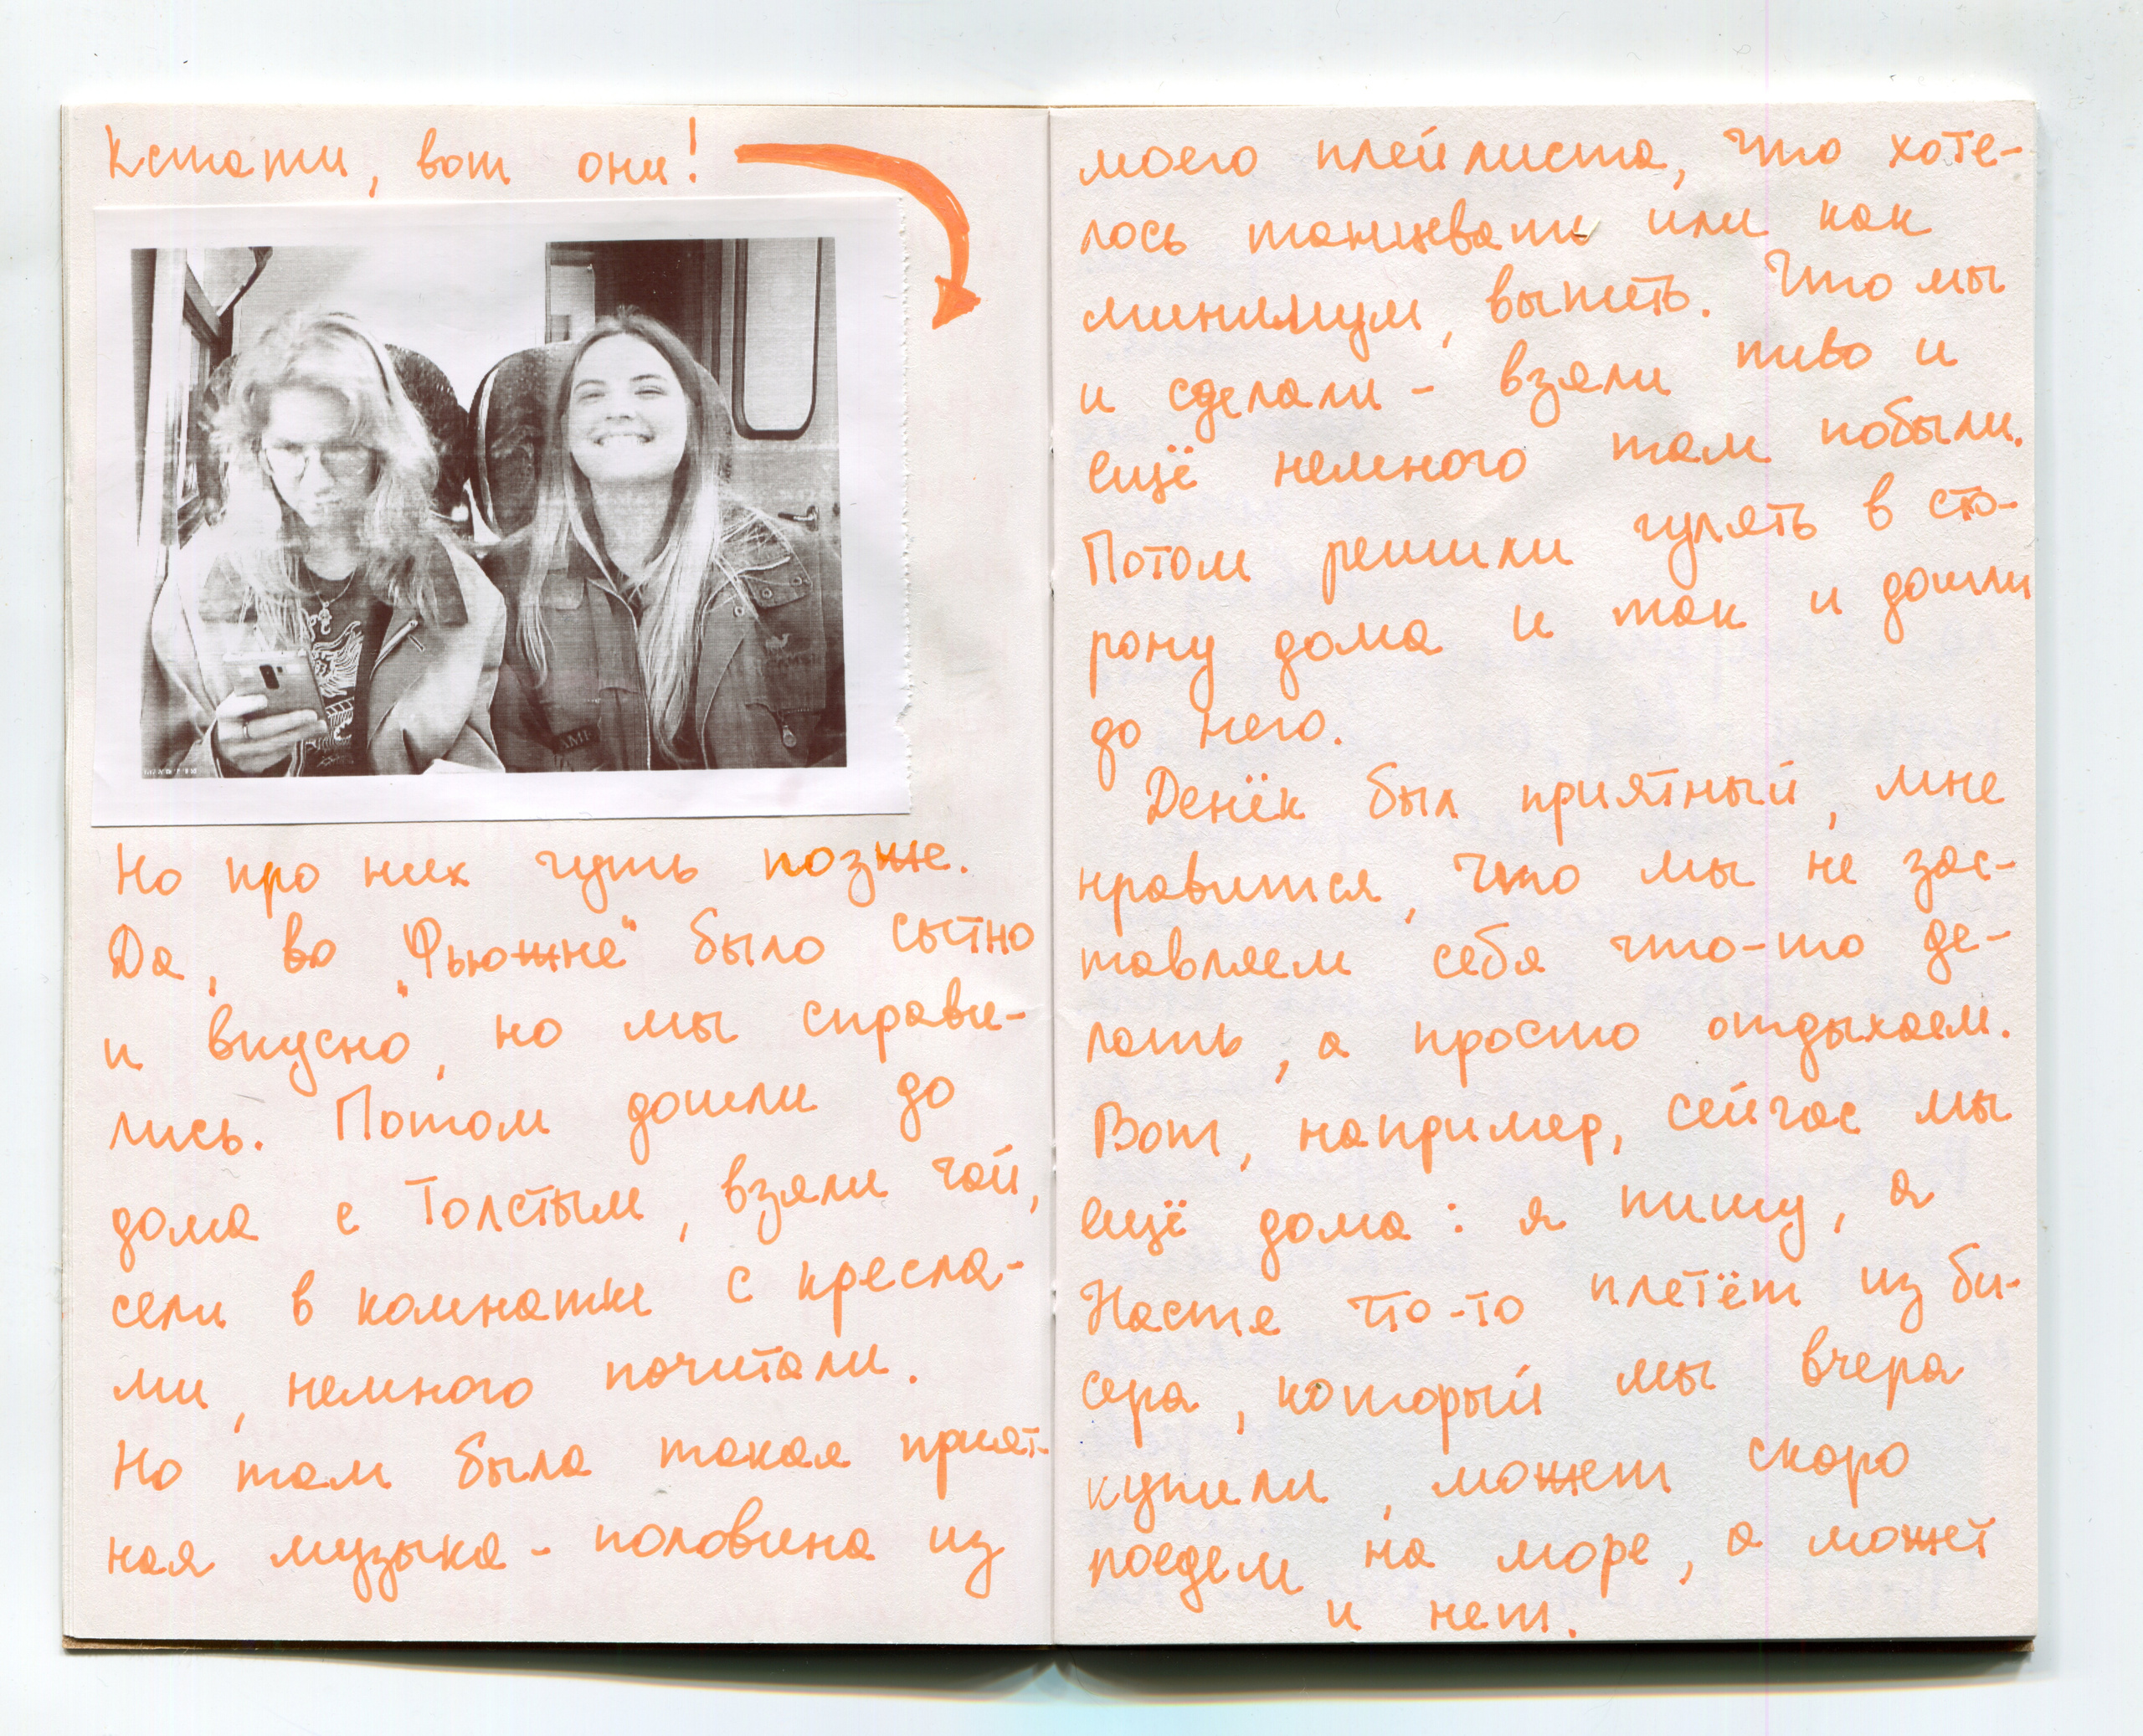 Кстати, вот они!
Но про них чуть позже.
Да, во „Фьюжне“ было сытно
и вкусно, но мы справи-
лись. Потом дошли до
дома с Толстым, взяли чай,
сели в комнатке с кресла-
ми, немного почитали.
Но там была такая прият-
ная музыка - половина из
моего плейлиста, что хоте-
лось танцевать или как
минимум, выпить. Что мы
и сделали - взяли пиво и
ещё немного там побыли.
Потом решили гулять в сто-
рону дома и так и дошли
до него.
Денёк был приятный, мне
нравится, что мы не зас-
тавляем себя что-то де-
лать, а просто отдыхаем.
Вот, например, сейчас мы
ещё дома: я пишу, а
Настя что-то плетёт из би-
сера, который мы вчера
купили, может скоро
поедем на море, а может
и нет.